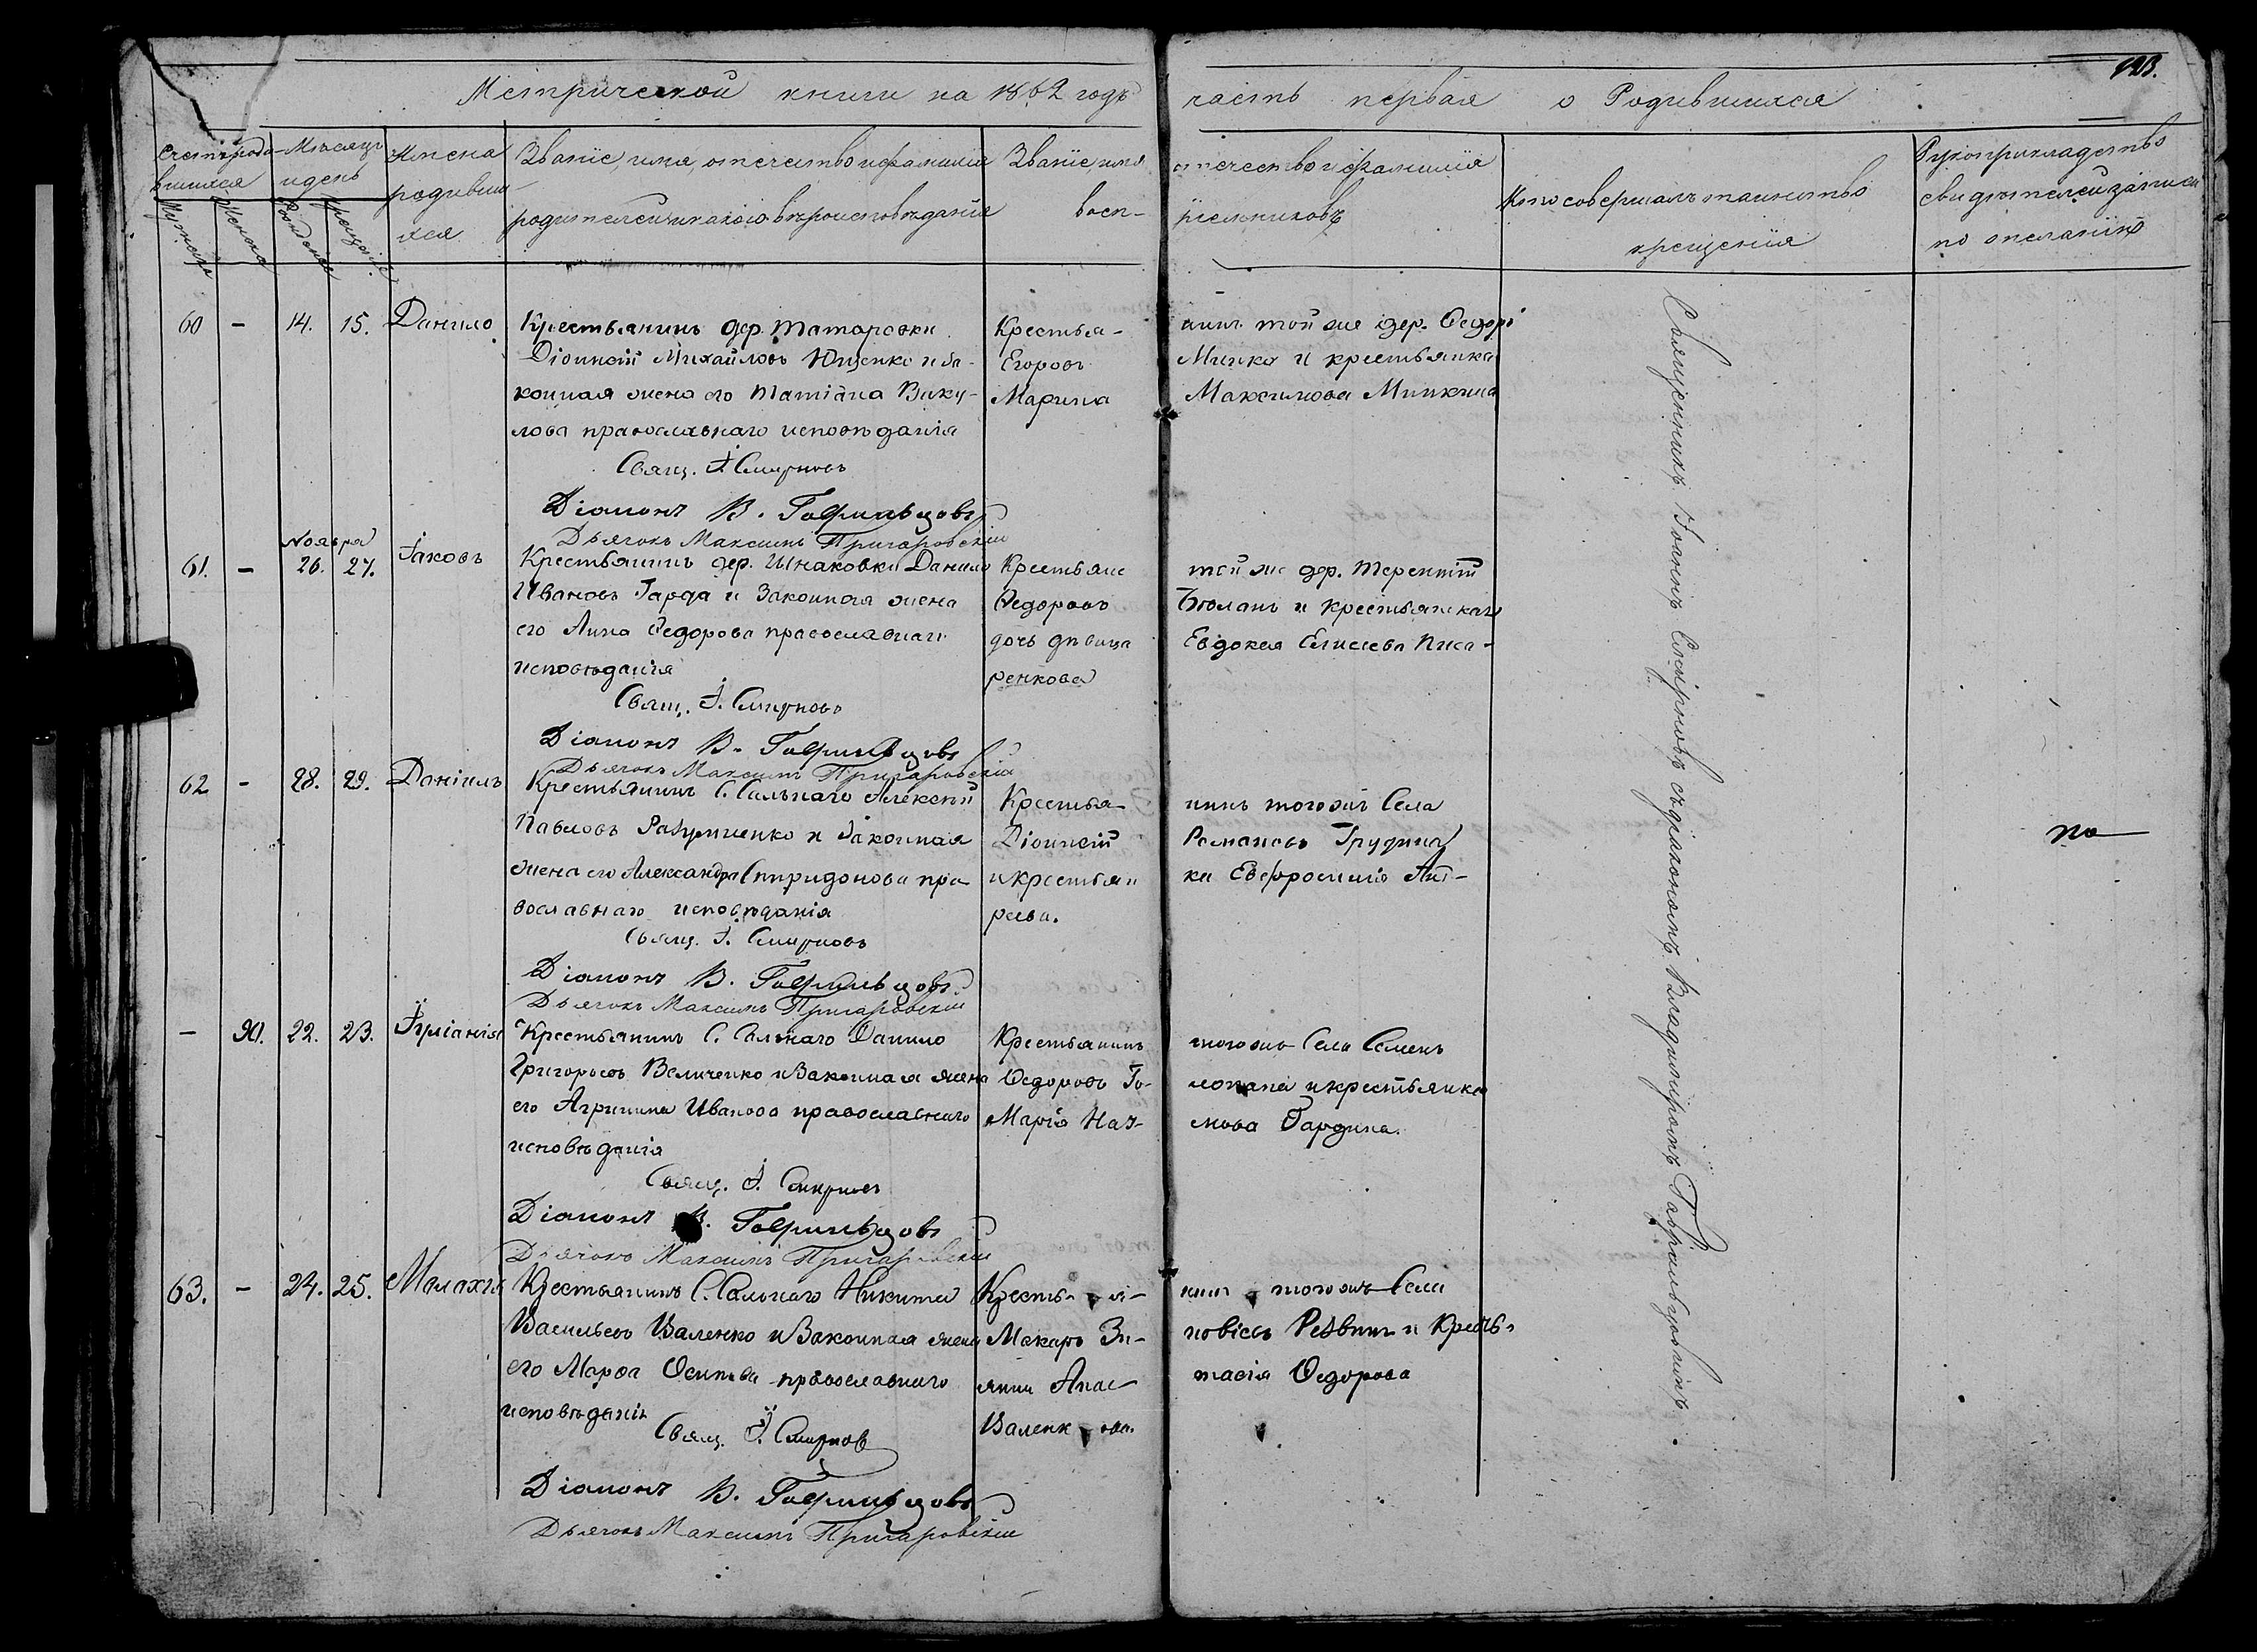 Метрической книги на 1862 годъ часть первая о Родившихся
Счетъ роди-
вшихся
Мужеска
Женска
Мѣсяцъ
и день
Рожденія
Крещенія
Имена
родивши-
хся
Званіе, имя, отечество и фамилія
родителей и какого вѣроисповѣданія
Званіе, имя, отечество и фамилія
восп- ріемниковъ
Кто совершалъ таинство
крещенія
Рукоприкладство
свидѣтелей записи
по желанію
60 - 14. 15. Данило
Крестьянинъ дер. Татаровки
Діонисій Михайловъ Ющенко и за-
конная жена его Татіана Вику-
лова православнаго исповѣданія
Свящ. І. Смирновъ
Діаконъ В. Гаврильцовъ
Дьячокъ Максимъ Пригаровскій
Крестья- нинъ той же дер. Ѳедоръ
Егоровъ Минка и крестьянка
Марина Максимова Минкина
Ноября
61. - 26. 27. Іаковъ
Крестьянинъ дер. Шнаковки Данило
Ивановъ Гарда и Законная жена
его Анна Ѳедорова православнаго
исповѣданія
Свящ. І. Смирновъ
Діаконъ В. Гаврильцовъ
Дьячокъ Максимъ Пригаровскій
Крестьяне той же дер. Терентій
Ѳедоровъ и крестьянская
дочь дѣвица Евдокея Елисеева Писа-
ренкова
62 - 28. 29. Даніилъ
Крестьянинъ С. Сальнаго Алексѣй
Павловъ Разумненко и Законная
жена его Александра Спиридонова пра-
вославнаго исповѣданія
Свящ. І. Смирновъ
Діаконъ В. Гаврильцовъ
Дьячокъ Максимъ Пригаровскій
Крестья- нинъ тогожъ Села
Діонисій Романовъ Грудина
и крестьян ка Евфросинія Анд-
реева.
- 22. 23. Іуліанія
Крестьянинъ С. Сальнаго Данило
Григорьевъ Величенко и Законная жена
его Агрипина Иванова православнаго
исповѣданія
Свящ. І. Смирновъ
Діаконъ В. Гаврильцовъ
Дьячокъ Максимъ Пригаровскій
Крестьянинъ тогожъ Села Семенъ
Ѳедоровъ Го- лопапа и крестьянка
Марія Наз- Гардина.
63. - 24. 25. Малахій
Крестьянинъ С. Сальнаго Никита
ВасильевъВаленко и Законная жена
его Марѳа Осипова православнаго
исповѣданія
Свящ. І. Смирновъ
Діаконъ В. Гаврильцовъ
Дьячокъ Максимъ Пригаровскій
Крестья- нинъ тогожъ Села
Макаръ Зи- новіевъ и Кресть-
янка Анас- тасія Ѳедорова
Валенкова.
Священникъ Іоаннъ Смирновъ съ діакономъ Владиміромъ Гаврильцовымъ.
по